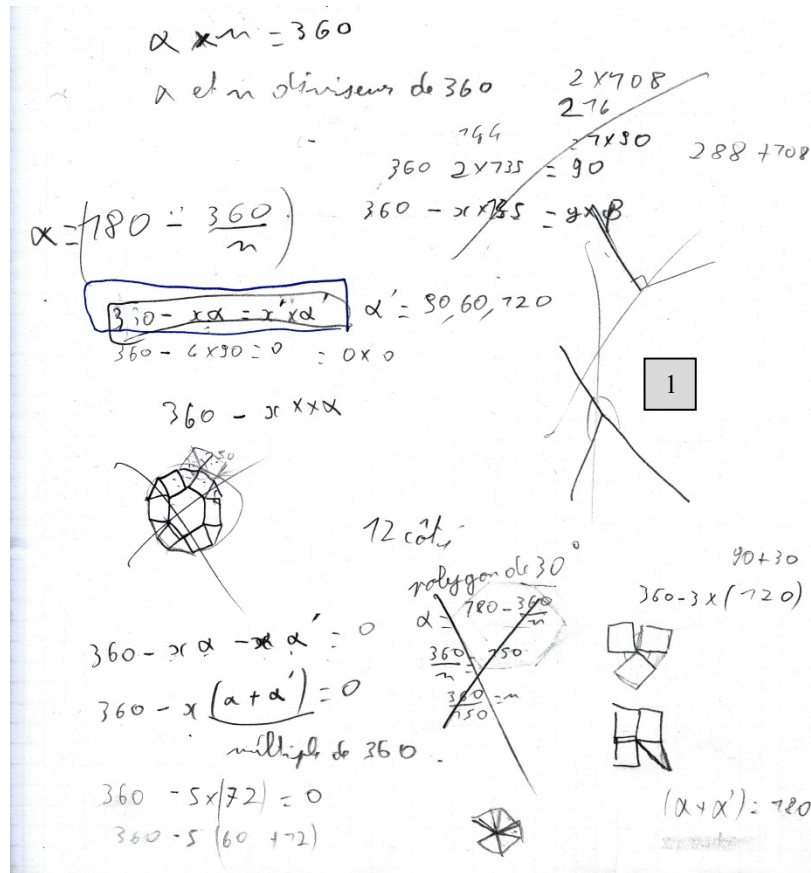 α x n = 360
α et n diviseur de 360
2 x 108
216
144
= 1 x 90
288 + 108
360 2 x 135 = 90
α = (180 - 360/n)
360 - x x 135 = y x β
360 - xα = x' x α'
α' = 90, 60, 120
360 - 4 x 90 = 0 = 0 x 0
1
360 - x x x α
150
12 côtés
polygon de 30°
90 + 30
360 - 3 x (120)
α = 180 - 360/n
360/n = 150
360/150 = n
360 - xα - xα' = 0
360 - x (α + α') = 0
multiple de 360.
360 - 5 x (72) = 0
360 - 5 (60 + 12)
(α + α') = 180